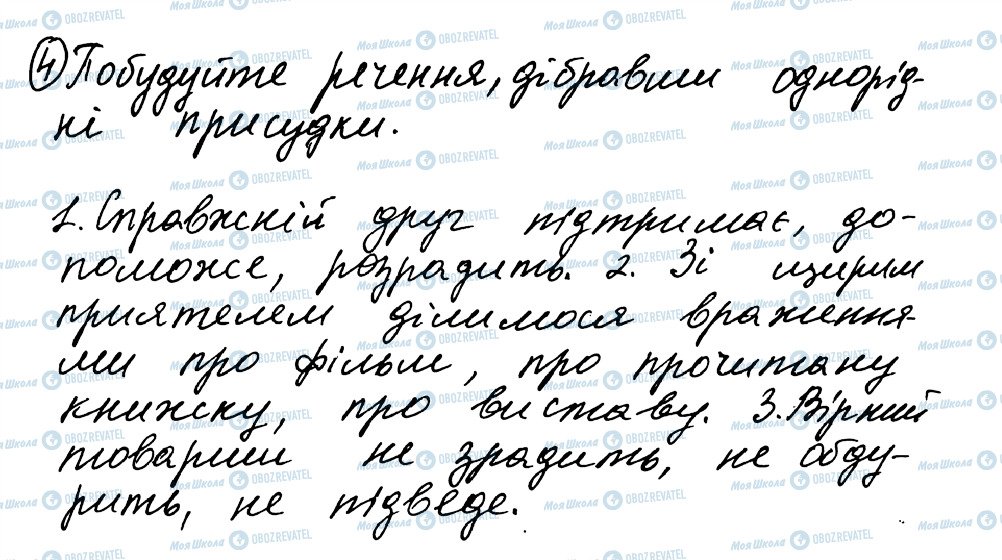 4 Побудуйте речення, дібравши однорід-
ні присудки.
1. Справжній друг підтримає, до-
поможе, розрадить. 2. Зі щирим
приятелем ділимося враження-
ми про фільм, про прочитану
книжку, про виставу. 3. Вірний
товариш не зрадить, не обду-
рить, не підведе.